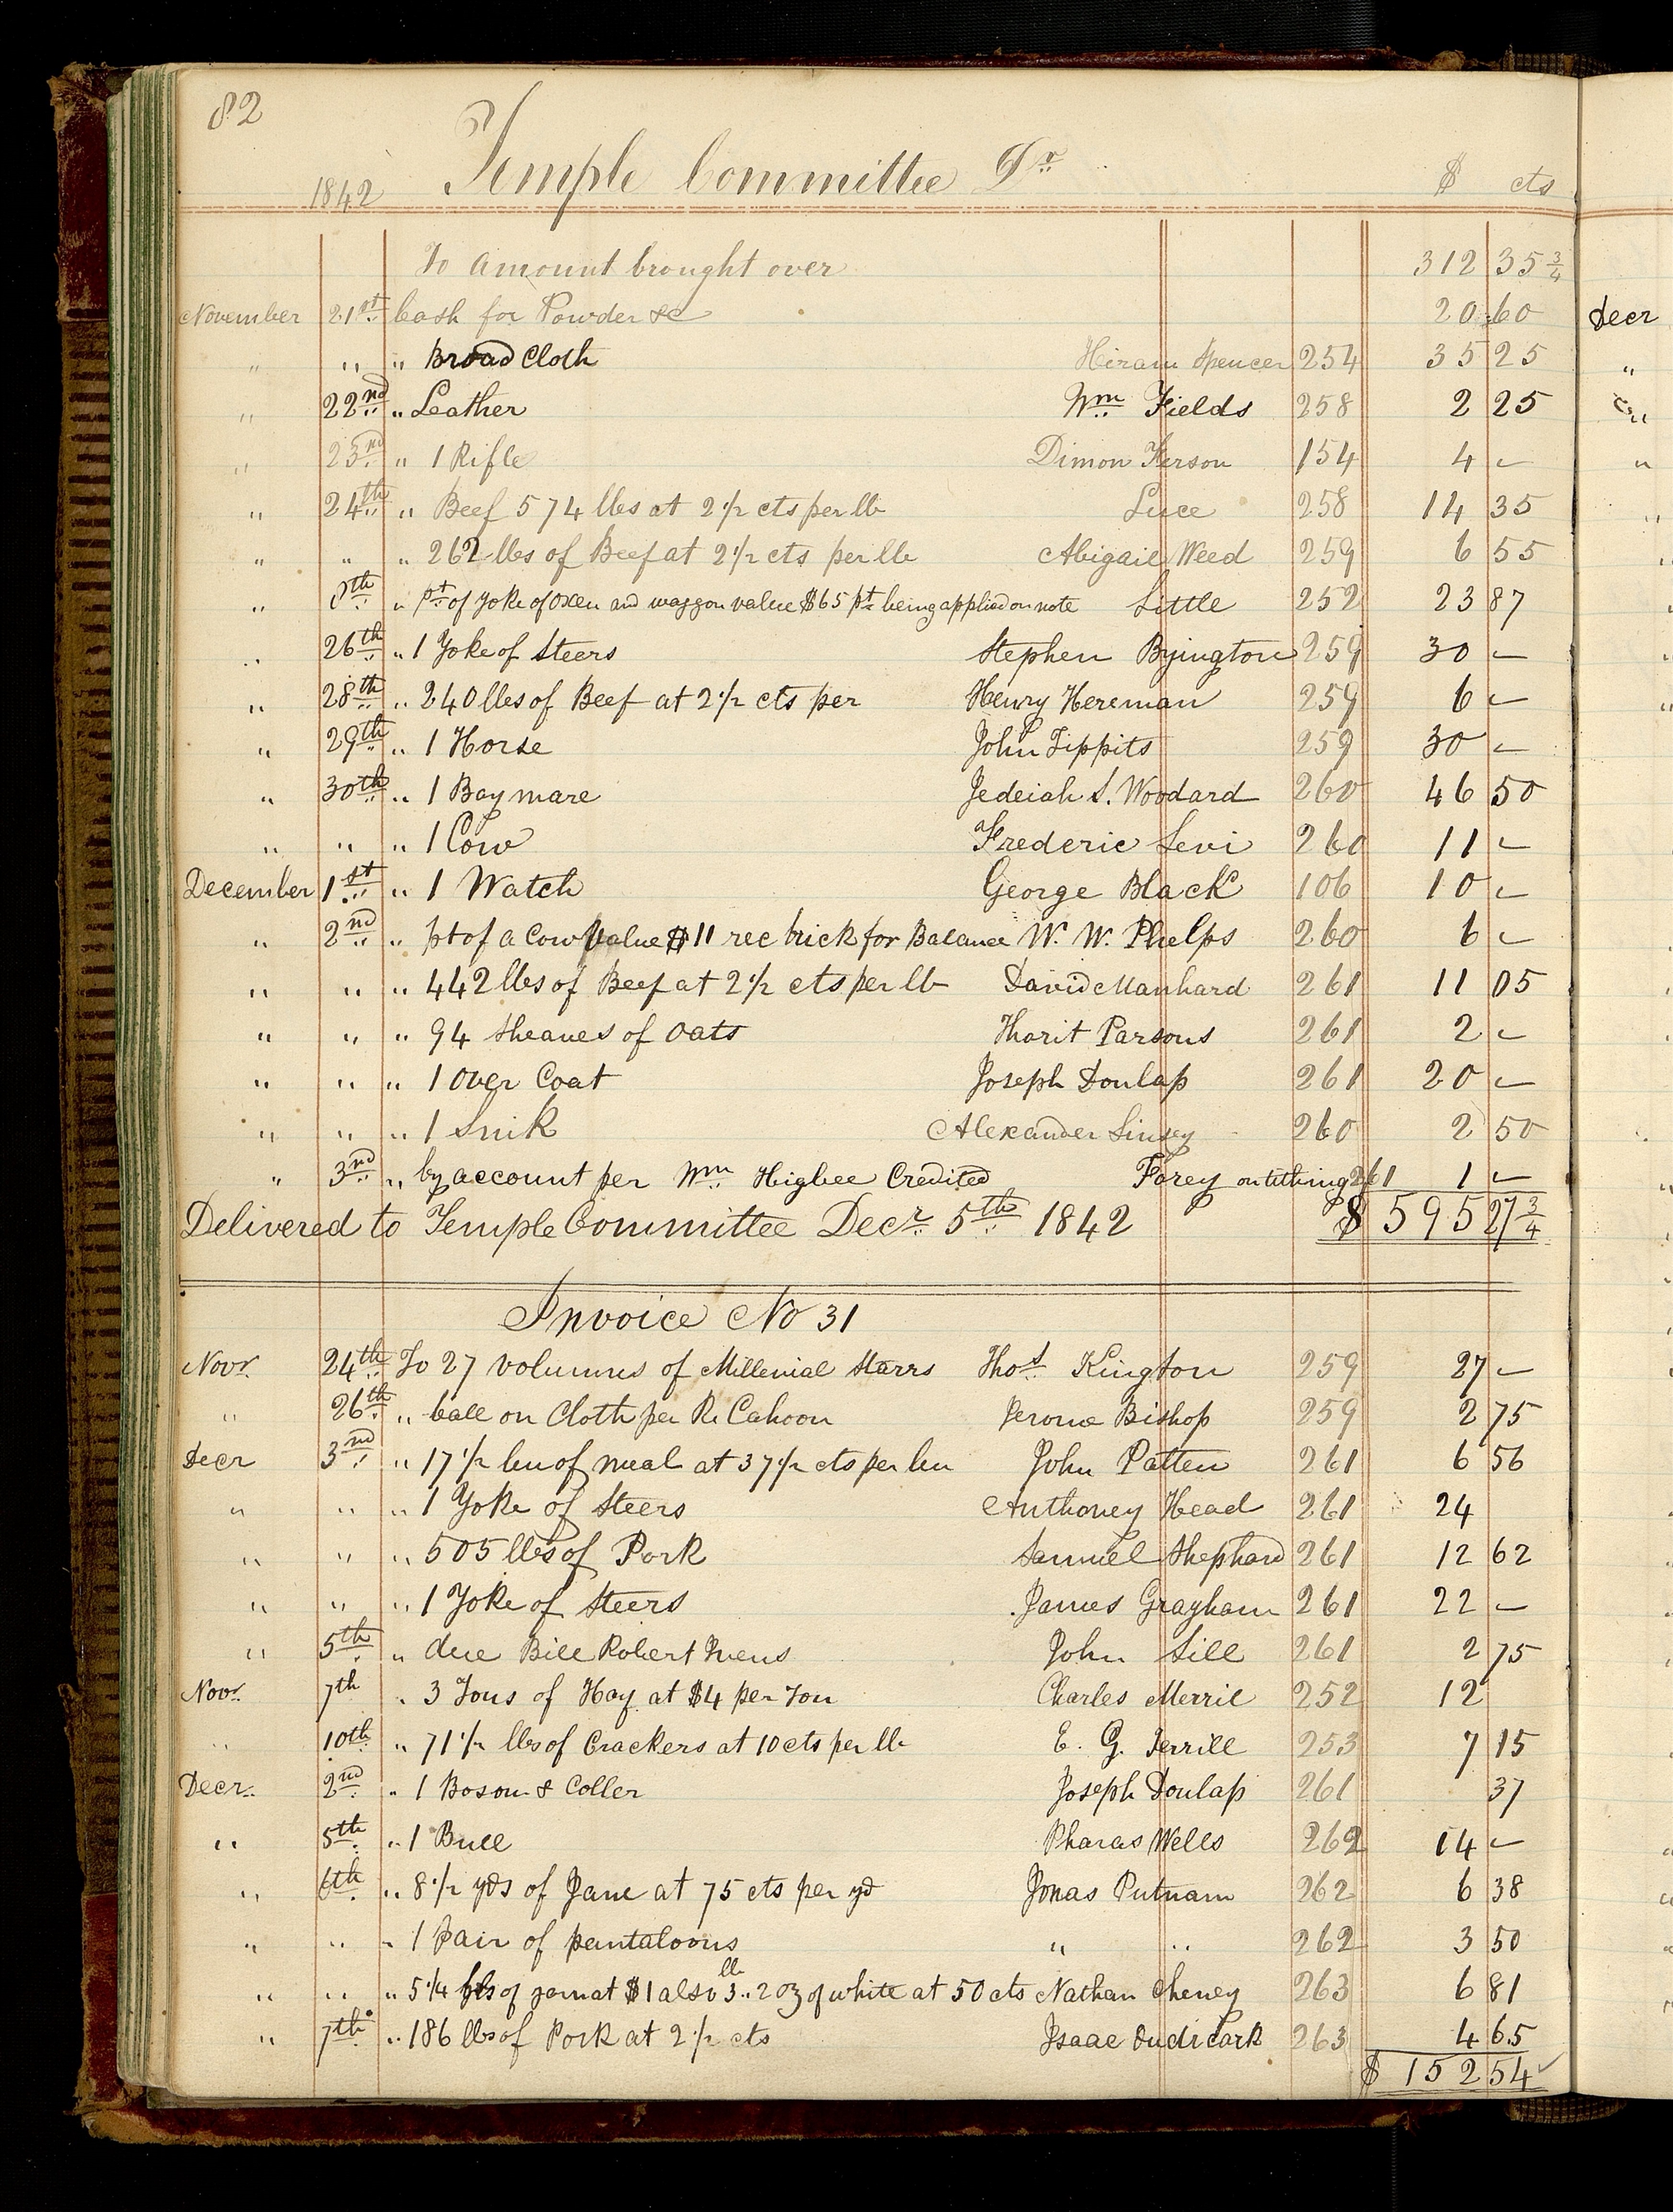 82
1842 Temple Committee Dr $ cts
To amount brought over 312 35 3/4
November 21st Cash for Powder &c 20 60
" " " Broad Cloth Hiram Spencer 254 35 25
" 22nd " Leather Wm Fields 258 2 25
" 23nd " 1 Rifle Dimon 154 4 –
" 24th " Beef 574 lbs at 2 1/2 cts per lb Luce 258 14 35
" " " 262 lbs of Beef at 2 1/2 cts per lb Abigail Weed 259 6 55
" 8th " pt of yoke of Oxen and waggon value $65 pt being applied on note Little 252 23 87
" 26th " 1 Yoke of Steers Stephen Byington 259 30 –
" 28th " 240 lbs of Beef at 2 1/2 cts per Henry Hereman 259 6 –
" 29th " 1 Horse John Tippits 259 30 –
" 30th " 1 Bay mare Jedeiah S. Woodard 260 46 50
" " " 1 Cow Frederic Levi 260 11 –
December 1st " 1 Watch George Black 106 10 –
" 2nd " pt of a Cow Value $11 rec brick for Balance W. W. Phelps 260 6 –
" " " 442 lbs of Beef at 2 1/2 cts per lb David Manhard 261 11 05
" " " 94 Sheaves of Oats Tharit Parsons 261 2 –
" " " 1 Over Coat Joseph Dunlap 261 20 –
" " " 1 Snik Alexander Linsey 260 2 50
" 3nd " by account per Wm Higbee Credited Forey on tithing 261 1 –
Delivered to Temple Committee Decr 5th 1842 $ 595 27 3/4
Invoice No 31
Novr. 24th To 27 Volumns of Millenial Starrs Thos Kington 259 27 –
" 26th " ball on Cloth per R. Cahoon Jerome Bishop 259 2 75
Decr 3nd " 17 1/2 bu of meal at 37 1/2 cts per bu John Patten 261 6 56
" " " 1 Yoke of Steers Anthoney Head 261 24
" " " 505 lbs of Pork Samuel Shephard 261 12 62
" " " 1 Yoke of Steers James Grayham 261 22 –
" 5th " due Bill Robert Ivens John Sill 261 2 75
Novr. 7th " 3 Tons of Hay at $4 per Ton Charles Merril 252 12
" 10th " 71 1/2 lbs of Crackers at 10 cts per lb E. G. Terrill 253 7 15
Decr. 2nd " 1 Bosom & Coller Joseph Dunlap 261 37
" 5th " 1 Bull Pharas Wells 262 14 –
" 6th " 8 1/2 yds of Jane at 75 cts per yd Jonas Putnam 262 6 38
" " " 1 Pair of pantaloons " " 262 3 50
" " " 5 1/4 lbs of yarn at $1 also 3 lb 2 oz of white at 50 cts Nathan Cheney 263 6 81
" 7th " 186 lbs of Pork at 2 1/2 cts Isaac 263 4 65
$ 152 54
Decr